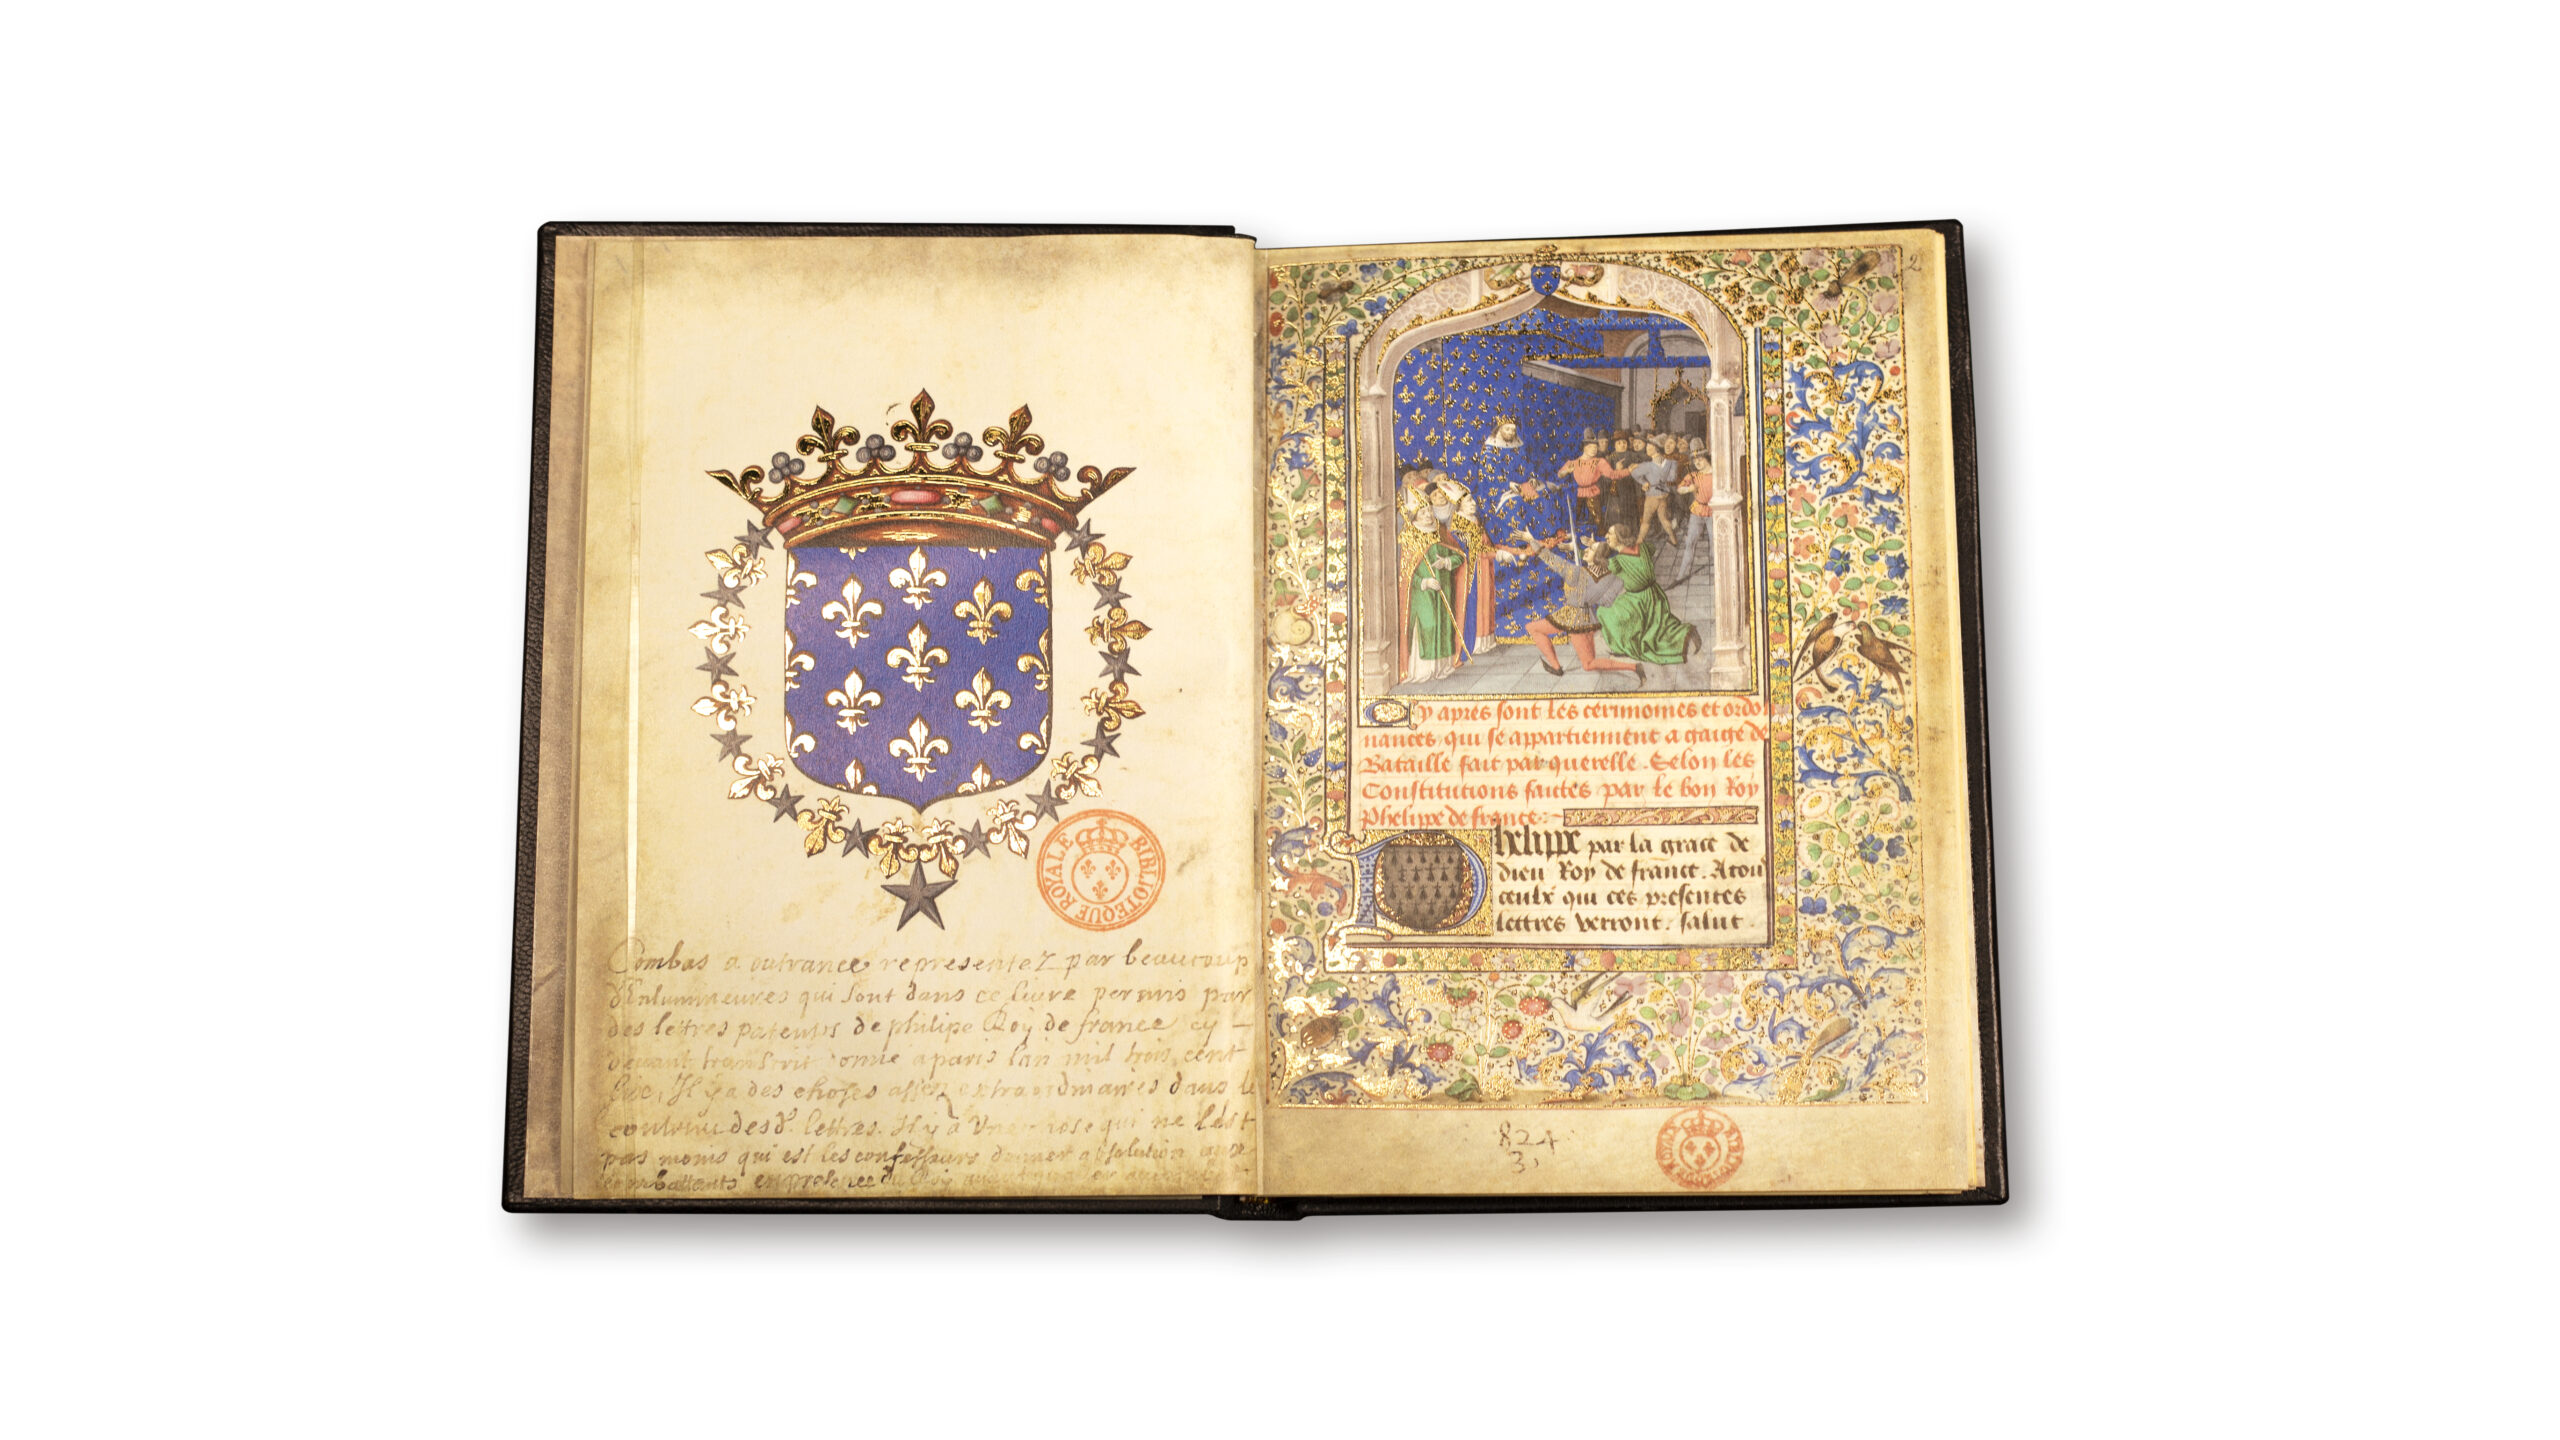 Combas a outrance representez par beaucoup
d'Enlumineures qui sont dans ce livre permis par
des lettres patentes de philipe Roy de france cy -
devant transcrit a paris l'an mil trois cent
Il y a des choses assez extraordinaires dans le
contenu des d. lettres. Il y a Une chose qui ne l'est
pas moins qui est les confesseurs donner absolution aux
combattants en presence du Roy
BIBLIOTEQUE ROYALE
2
Cy apres sont les cerimonies et ordo
nances qui se appartiennent a gaige de
Bataille fait par querelle. Selon les
Constitutions faites par le bon Roy
Phelipe de france.
Phelippe par la grace de
dieu Roy de france. A tou
ceulx qui ces presentes
lettres verront. salut.
824
3.
BIBLIOTEQUE ROYALE